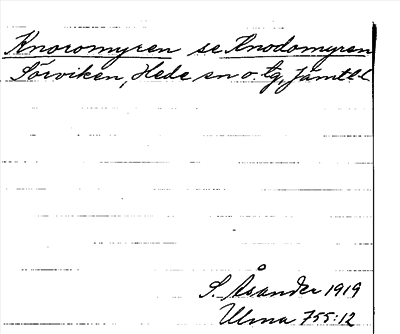 Knoromyren se Knodomyren
Sörviken, Hede sn o. tg, Jämtl.
S. Åsander 1919
Ulma 755:12